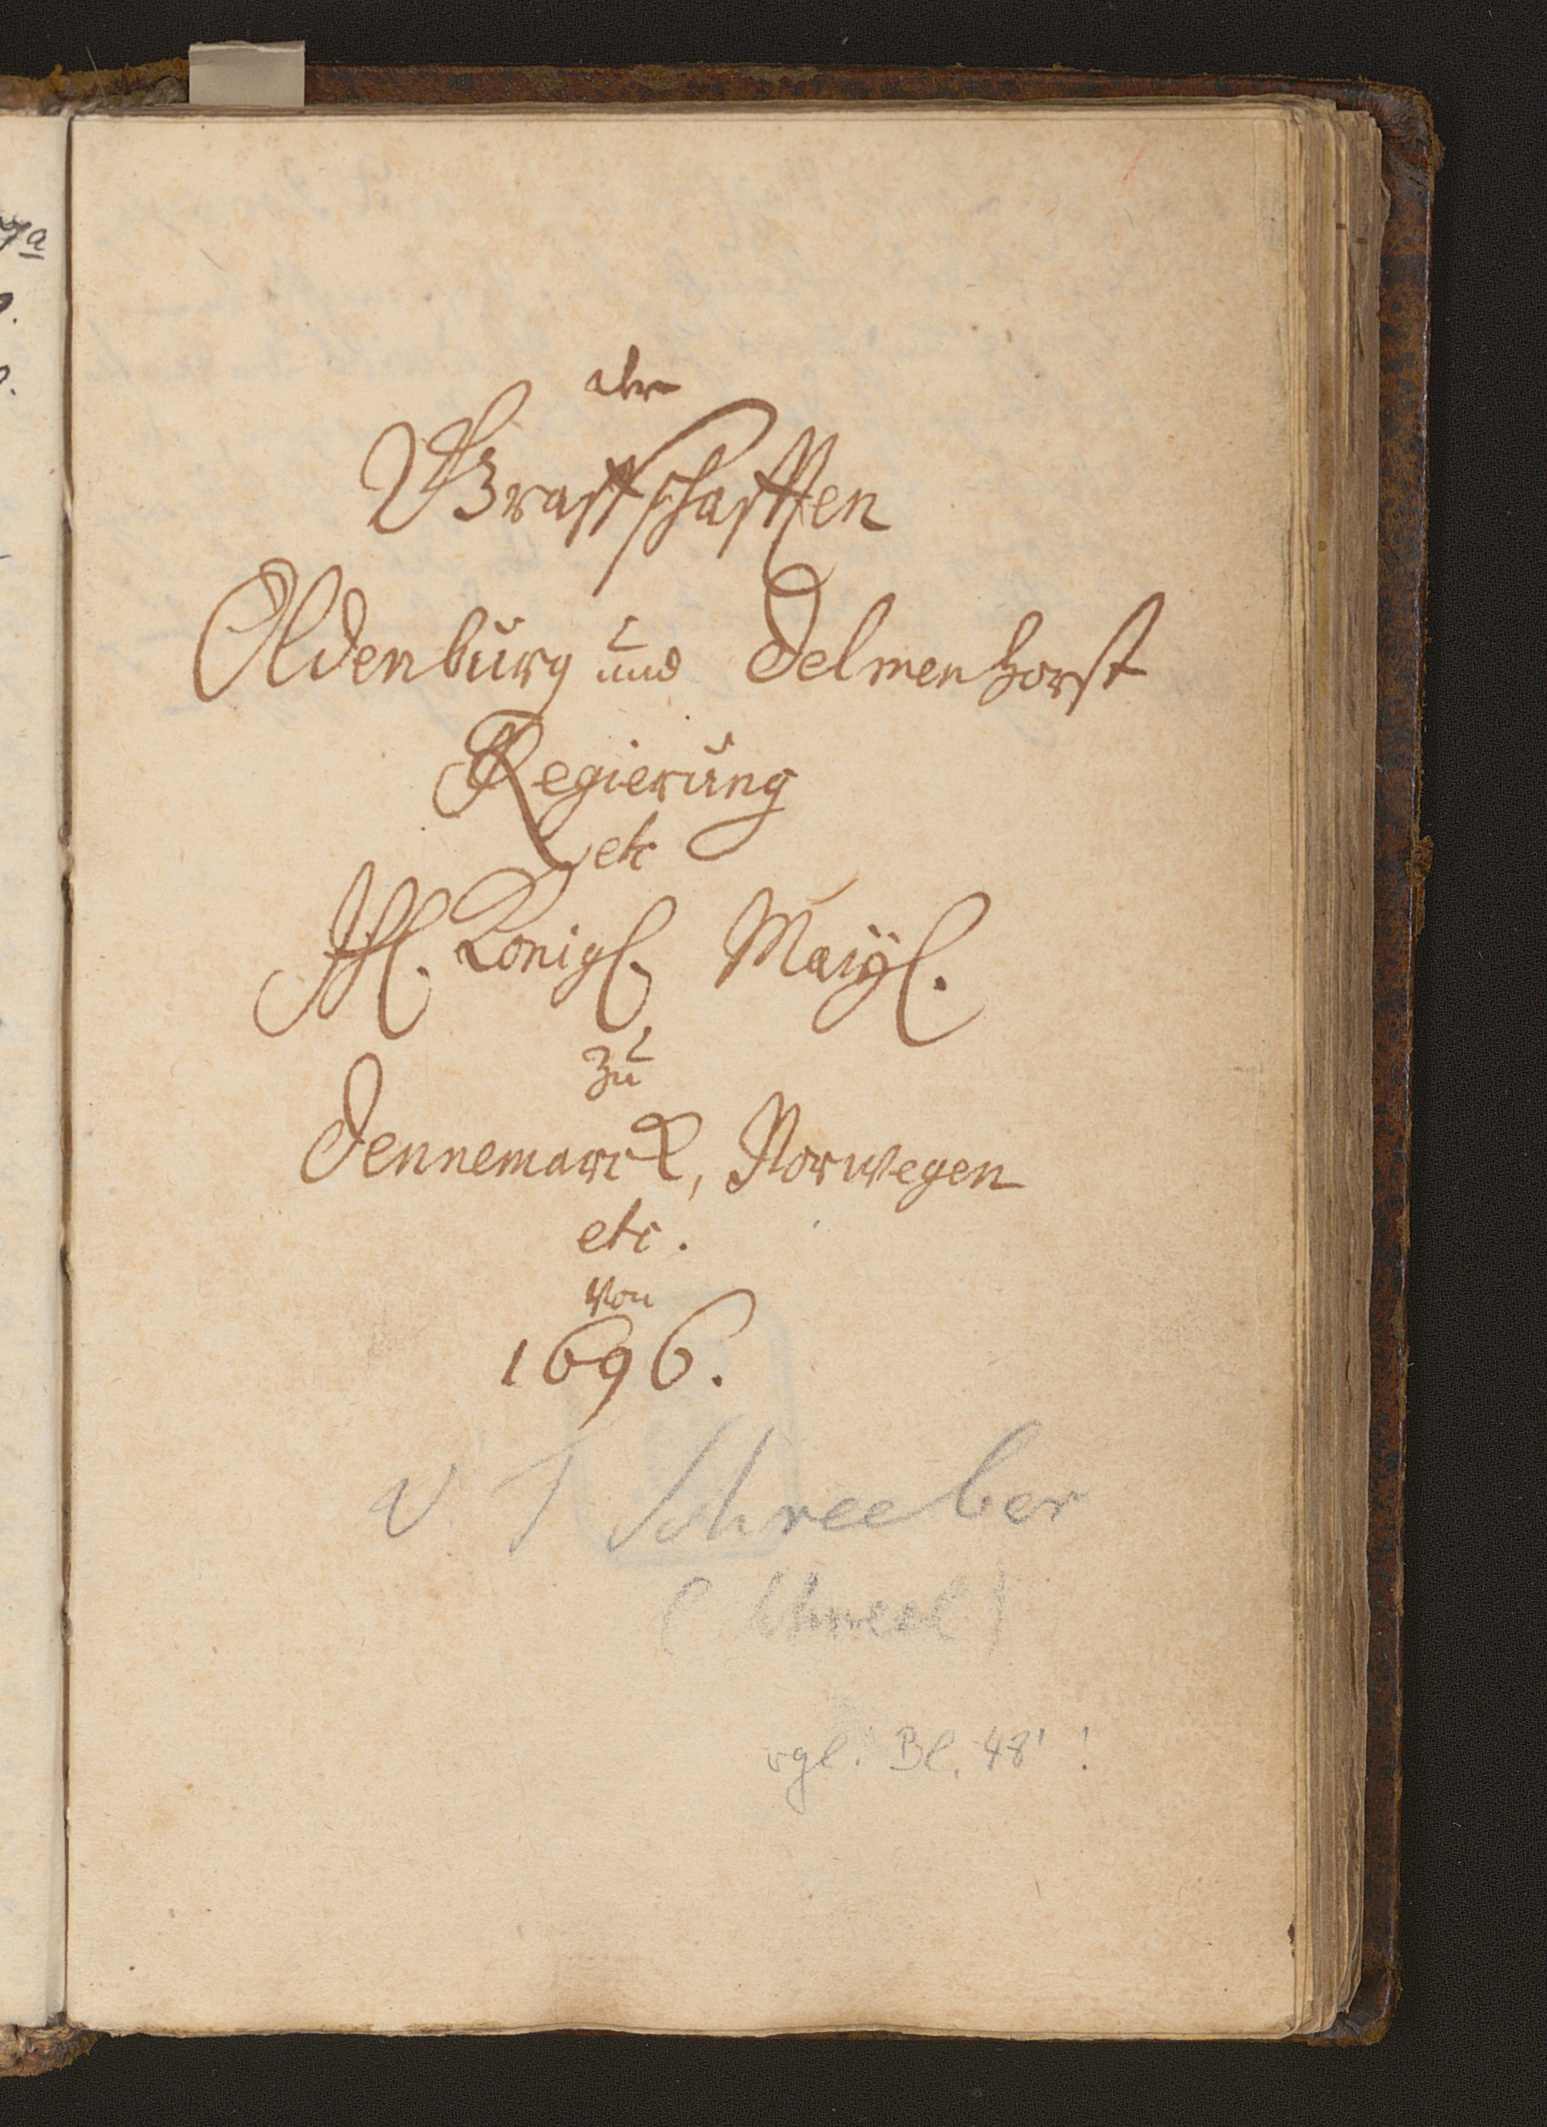 der
Graffschafften
Oldenburg und Delmenhorst
Regierung
etc
Ihl. Königl. Mayl.
zu
Dennemarck, Norwegen
etc.
von
1696.
v. J Schreeber
(Schreel)
vgl. Bl. 48' !